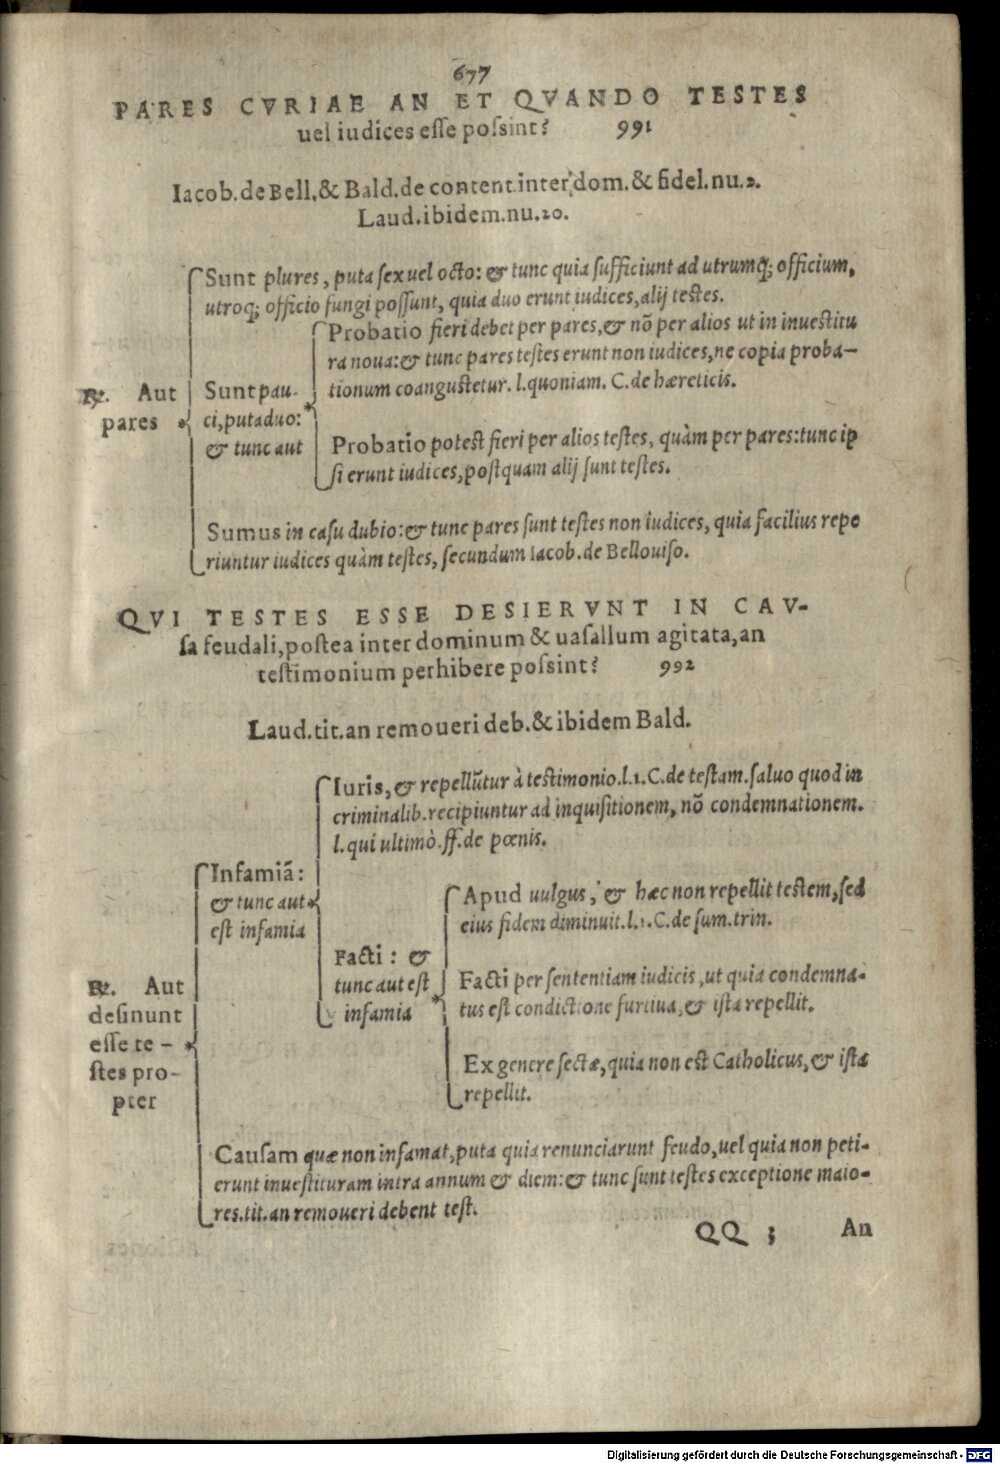 677
PARES CVRIAE AN ET QVANDO TESTES
uel iudices esse possint? 991
Iacob.de Bell.& Bald.de content.inter dom.& fidel.nu.2.
Laud.ibidem.nu.20.
Sunt plures, puta sex uel octo: & tunc quia sufficiunt ad utrumq; officium,
utroq; officio fungi possunt, quia duo erunt iudices, alij testes.
℞. Aut
pares
Sunt pau-
ci, puta duo:
& tunc aut
Probatio fieri debet per pares, & nõ per alios ut in inuestitu
ra noua: & tunc pares testes erunt non iudices, ne copia proba-
tionum coangustetur. l.quoniam. C.de hæreticis.
Probatio potest fieri per alios testes, quàm per pares: tunc ip
si erunt iudices, postquam alij sunt testes.
Sumus in casu dubio: & tunc pares sunt testes non iudices, quia facilius repe
riuntur iudices quàm testes, secundum Iacob.de Bellouiso.
QVI TESTES ESSE DESIERVNT IN CAV-
sa feudali, postea inter dominum & uasallum agitata, an
testimonium perhibere possint? 992
Laud.tit.an remoueri deb.& ibidem Bald.
℞. Aut
desinunt
esse te-
stes pro-
pter
Infamiã:
& tunc aut
est infamia
Iuris, & repellũtur à testimonio.l.1.C.de testam.saluo quod in
criminalib.recipiuntur ad inquisitionem, nõ condemnationem.
l.qui ultimò.ff.de pœnis.
Facti: &
tunc aut est
infamia
Apud uulgus, & hæc non repellit testem, sed
eius fidem diminuit.l.1.C.de sum.trin.
Facti per sententiam iudicis, ut quia condemna-
tus est condictione furtiua, & ista repellit.
Ex genere sectæ, quia non est Catholicus, & ista
repellit.
Causam quæ non infamat, puta quia renunciarunt feudo, uel quia non peti-
erunt inuestituram intra annum & diem: & tunc sunt testes exceptione maio-
res.tit.an remoueri debent test.
QQ 3 An
Digitalisierung gefördert durch die Deutsche Forschungsgemeinschaft - DFG